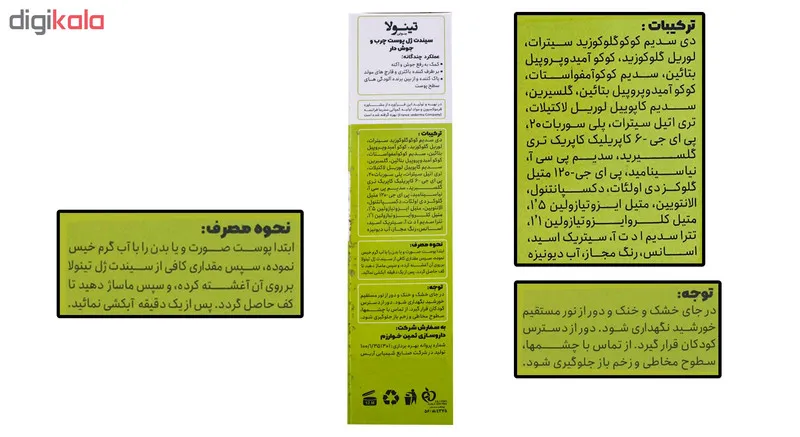 digikala
تینولا
سیندت ژل پوست چرب و
جوش دار
عملکرد چندگانه:
کمک به رفع جوش و آکنه
بر طرف کننده باکتری و قارچ های مولد
پاک کننده و از بین برنده آلودگی های
سطح پوست
ترکیبات:
دی سدیم کوکوگلوکوزید سیترات،
لوریل گلوکوزید، کوکو آمیدوپروپیل
بتائین، سدیم کوکوآمفواستات،
کوکو آمیدوپروپیل بتائین، گلسیرین،
سدیم کاپوییل لوریل لاکتیلات،
تری اتیل سیترات، پلی سوربات۲۰،
پی ای جی -۶ کاپریلیک کاپریک تری
گلسیرید، سدیم پی سی آ،
نیاسینامید، پی ای جی-۱۲۰ متیل
گلوکز دی اولئات، دکسپانتنول،
الانتویین، متیل ایزوتیازولین ۱٫۵،
متیل کلروایزوتیازولین ۱٫۱،
تترا سدیم ا د ت آ، سیتریک اسید،
اسانس، رنگ مجاز، آب دیونیزه
نحوه مصرف:
ابتدا پوست صورت و یا بدن را با آب گرم خیس
نموده، سپس مقداری کافی از سیندت ژل تینولا
بر روی آن آغشته کرده، و سپس ماساژ دهید تا
کف حاصل گردد. پس از یک دقیقه آبکشی نمائید.
توجه:
در جای خشک و خنک و دور از نور مستقیم
خورشید نگهداری شود. دور از دسترس
کودکان قرار گیرد. از تماس با چشمها،
سطوح مخاطی و زخم باز جلوگیری شود.
به سفارش شرکت:
داروسازی ثمین خوارزم